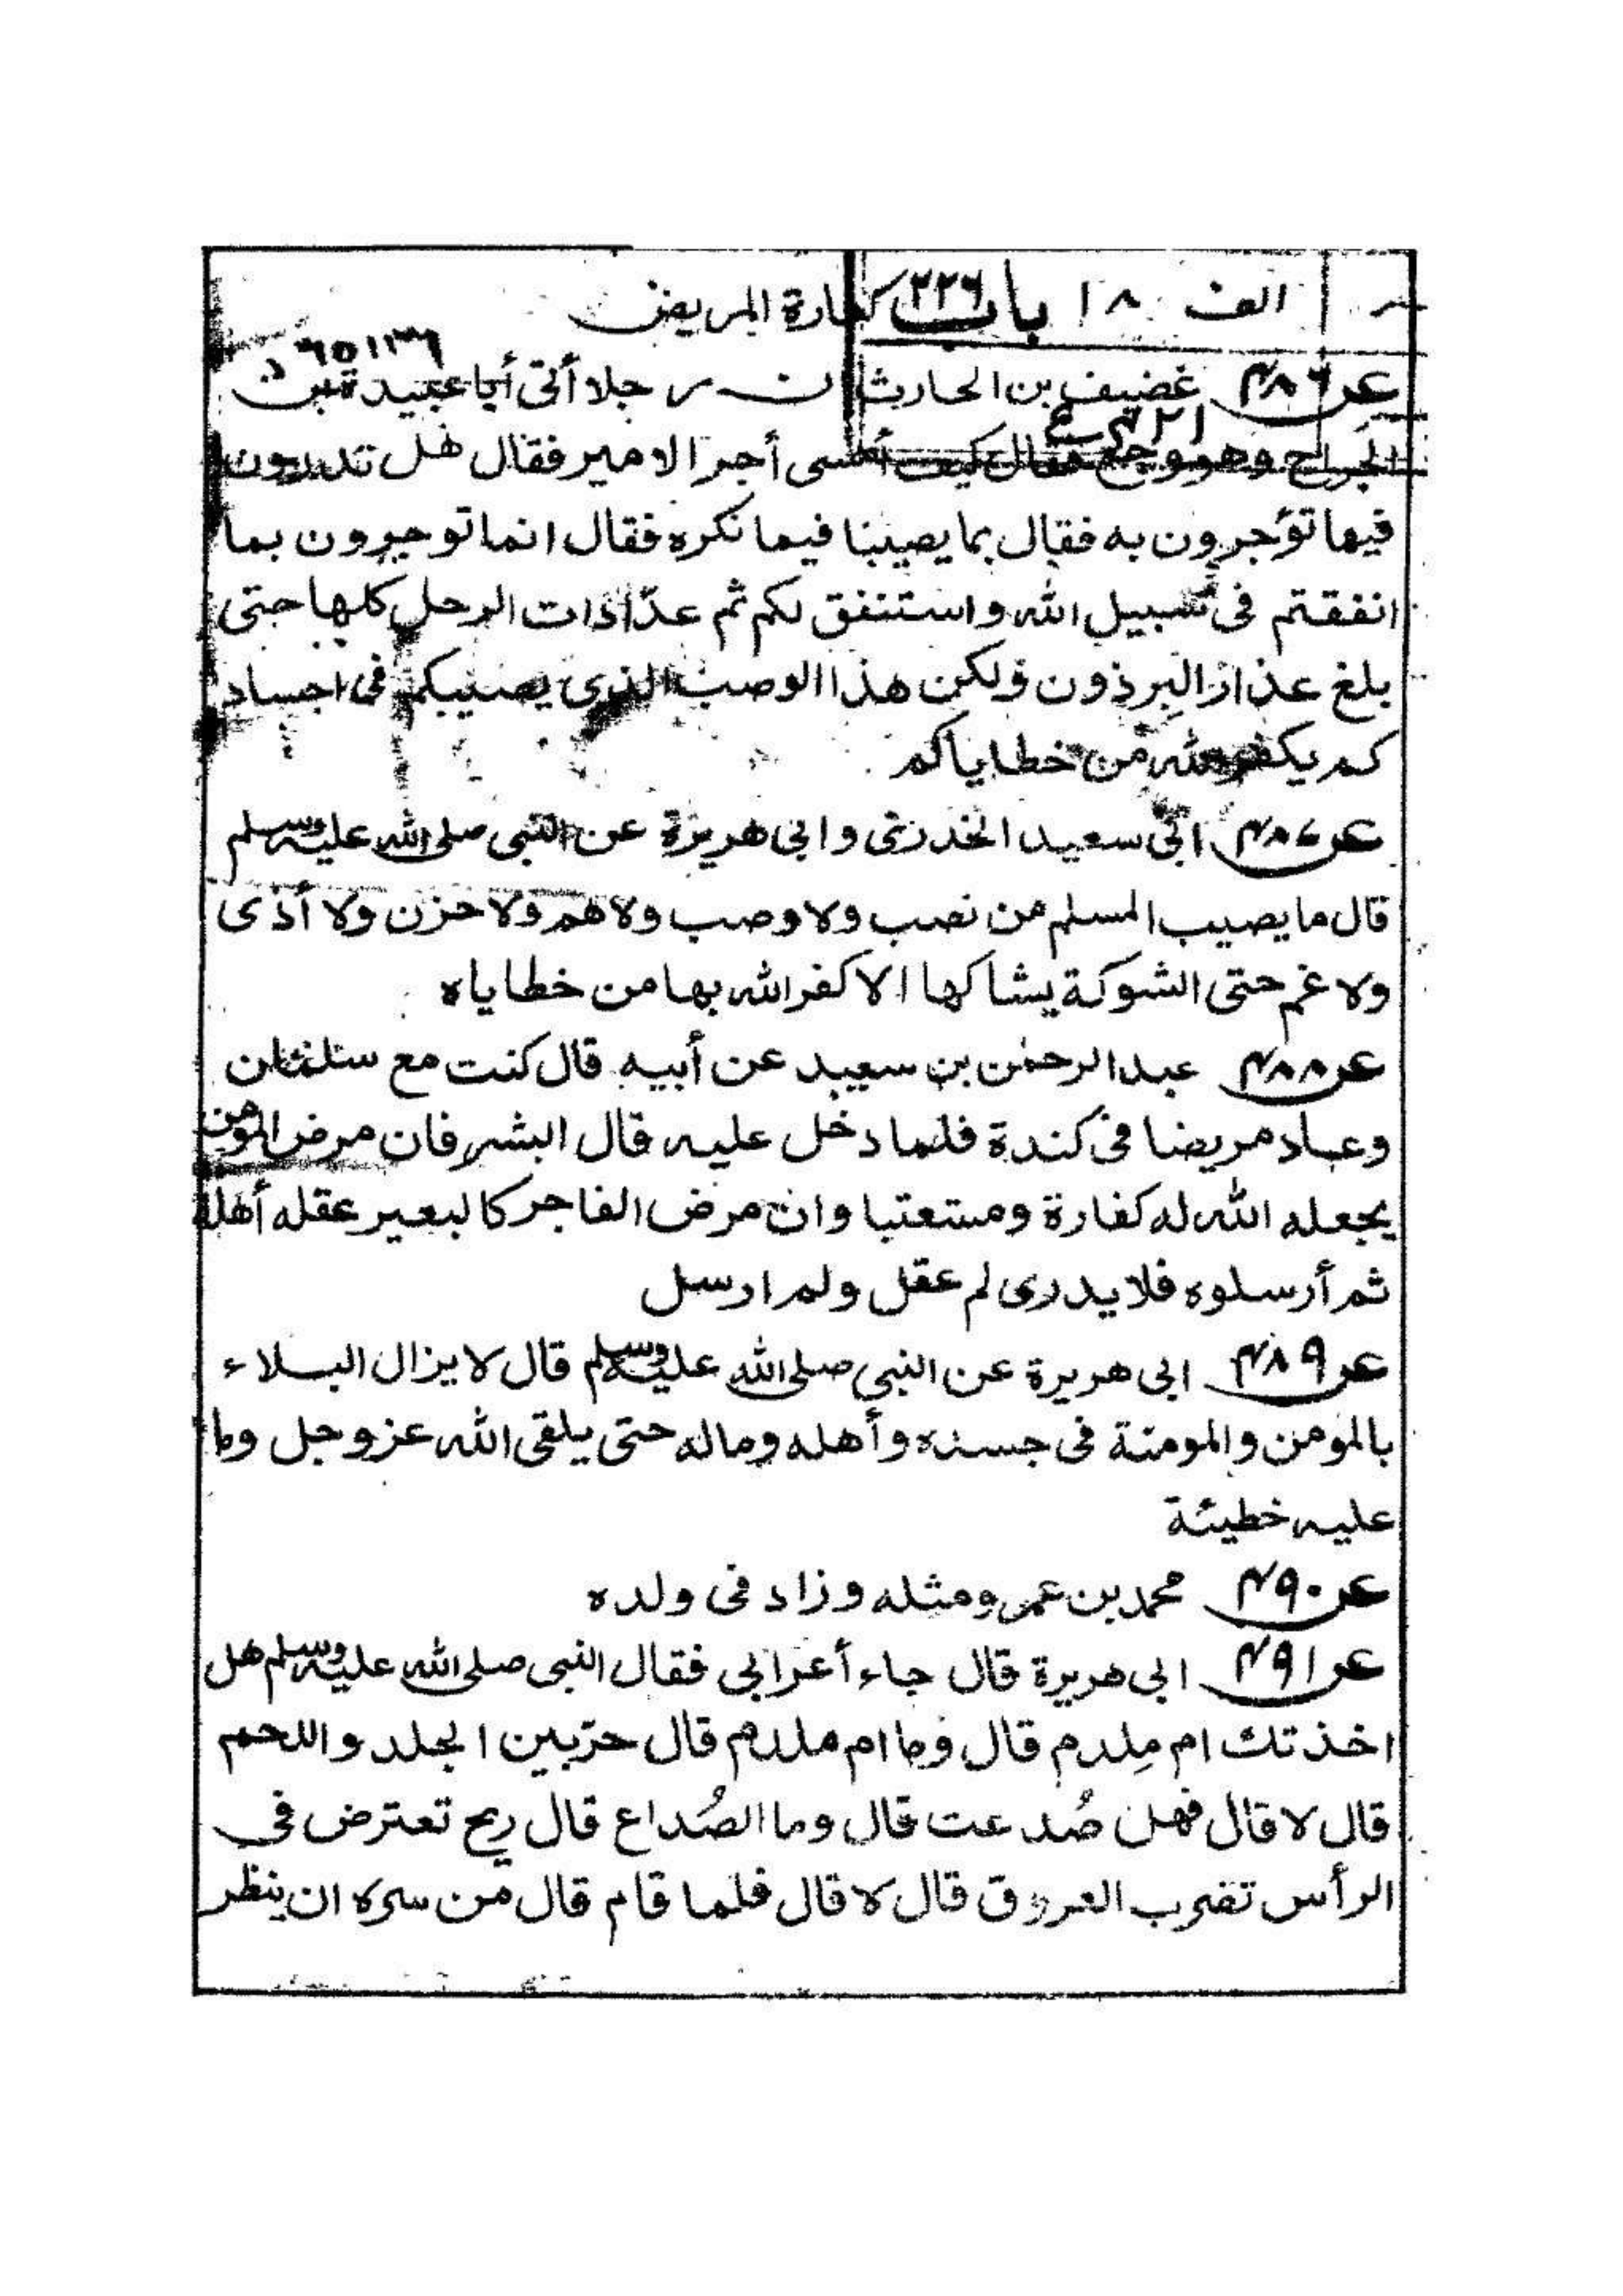 الف ١٨ باب ٢٢٦ كفارة المريض
٦٥١٣٦
عن ٤٨٦ غضيف بن الحارث ان رجلا أتى أبا عبيدة بن
الجراح وهو وجع فقال كيف أمسى أجر الامير فقال هل تدرون
فيما تؤجرون به فقال بما يصيبنا فيما نكره فقال انما توجرون بما
انفقتم فى سبيل الله واستنفق لكم ثم عدّ اداات الرحل كلها حتى
بلغ عذار البرذون ولكن هذا الوصب الذى يصيبكم فى اجساد
كم يكفر الله من خطاياكم
عن ٤٨٧ ابى سعيد الخدرى وابى هريرة عن النبى صلى الله عليه وسلم
قال ما يصيب المسلم من نصب ولا وصب ولا هم ولا حزن ولا أذى
ولا غم حتى الشوكة يشاكها الا كفر الله بها من خطاياه
عن ٤٨٨ عبد الرحمٰن بن سعيد عن أبيه قال كنت مع سلمان
وعاد مريضا فى كندة فلما دخل عليه قال البشر فان مرض المومن
يجعله الله له كفارة ومستعتبا وان مرض الفاجر كالبعير عقله أهله
ثم أرسلوه فلا يدرى لم عقل ولم ارسل
عن ٤٨٩ ابى هريرة عن النبى صلى الله عليه وسلم قال لا يزال البلاء
بالمومن والمومنة فى جسده وأهله وماله حتى يلقى الله عز وجل وما
عليه خطيئة
عن ٤٩٠ محمد بن عمرو مثله وزاد فى ولده
عن ٤٩١ ابى هريرة قال جاء أعرابى فقال النبى صلى الله عليه وسلم هل
اخذتك ام مِلدم قال وما ام ملدم قال حرّ بين الجلد واللحم
قال لا قال فهل صُدعت قال وما الصُداع قال ريح تعترض فى
الرأس تضرب العروق قال لا قال فلما قام قال من سره ان ينظر